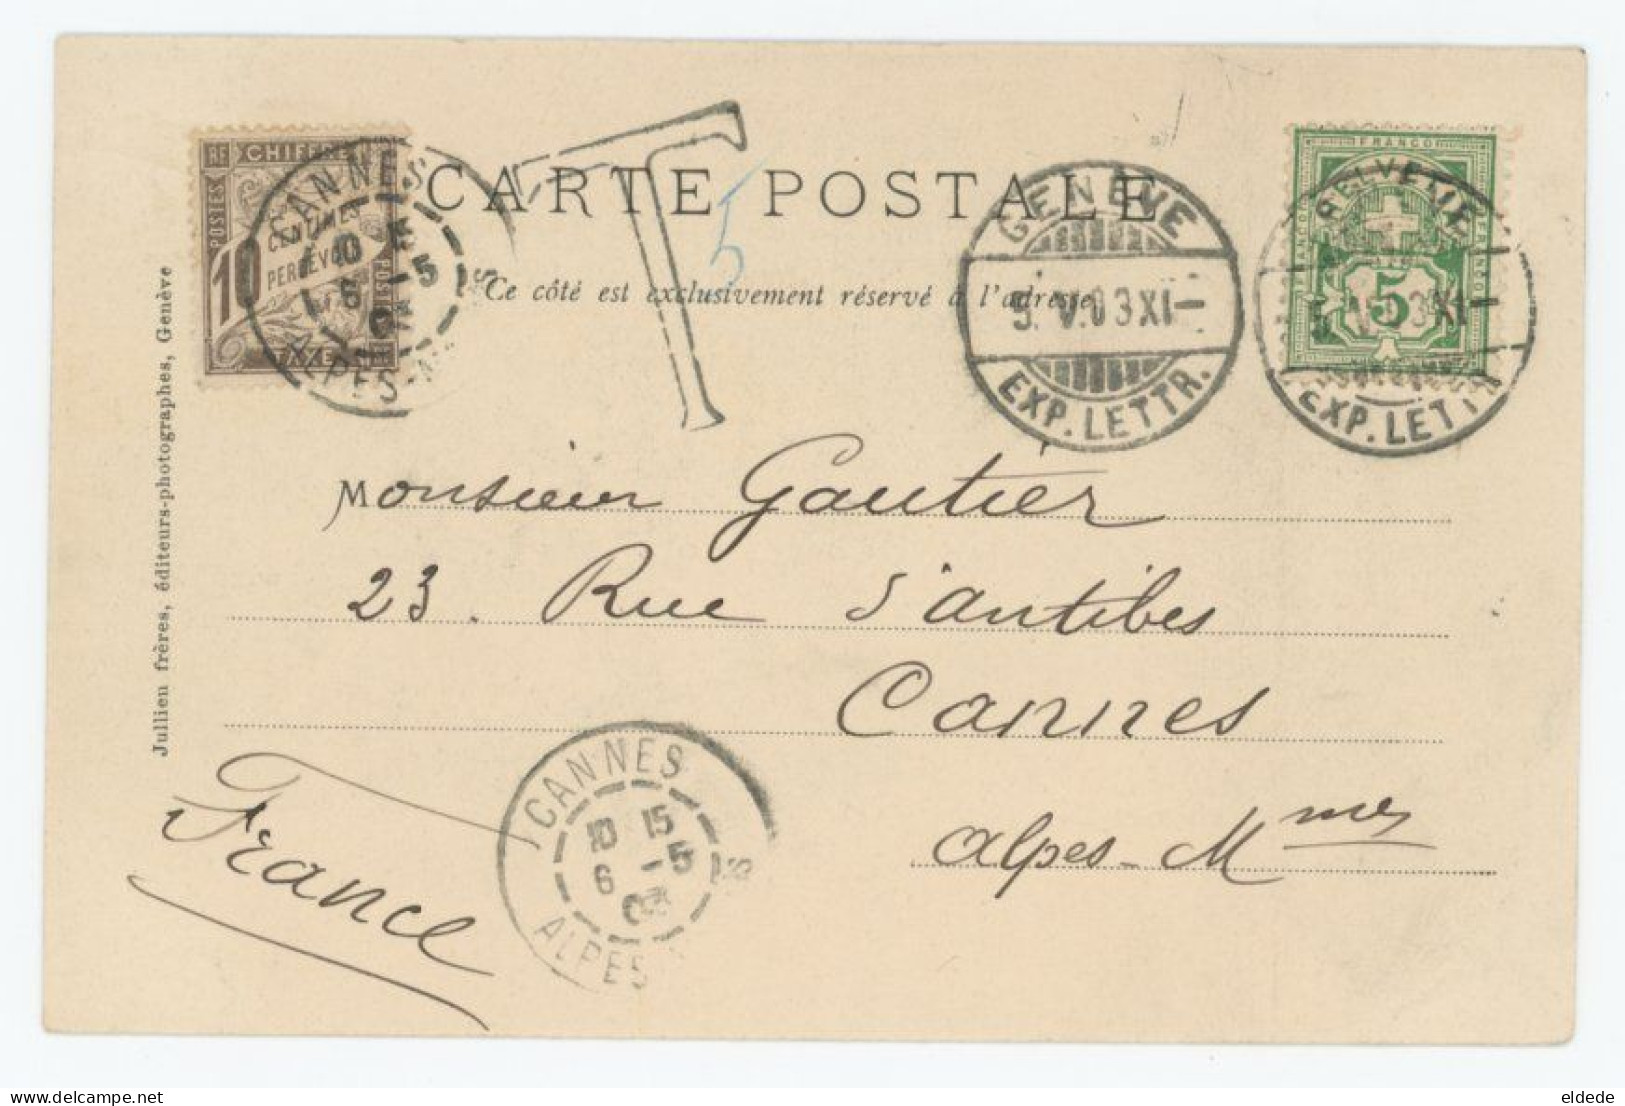 CARTE POSTALE
Ce côté est exclusivement réservé à l'adresse
RF CHIFFRE
POSTES
CENTIMES
10
TAXE
CANNES
10
-5
ALPES-M
T
5
GENÈVE
5.V.03 XI-
EXP. LETTR.
FRANCO
HELVETIA
5
5.V.03 XI-
EXP. LETTR
Monsieur Gautier
23. Rue d'antibes
Cannes
Alpes-Mmes
France
CANNES
10 15
6 -5
03
ALPES
Jullien frères, éditeurs-photographes, Genève
eldede